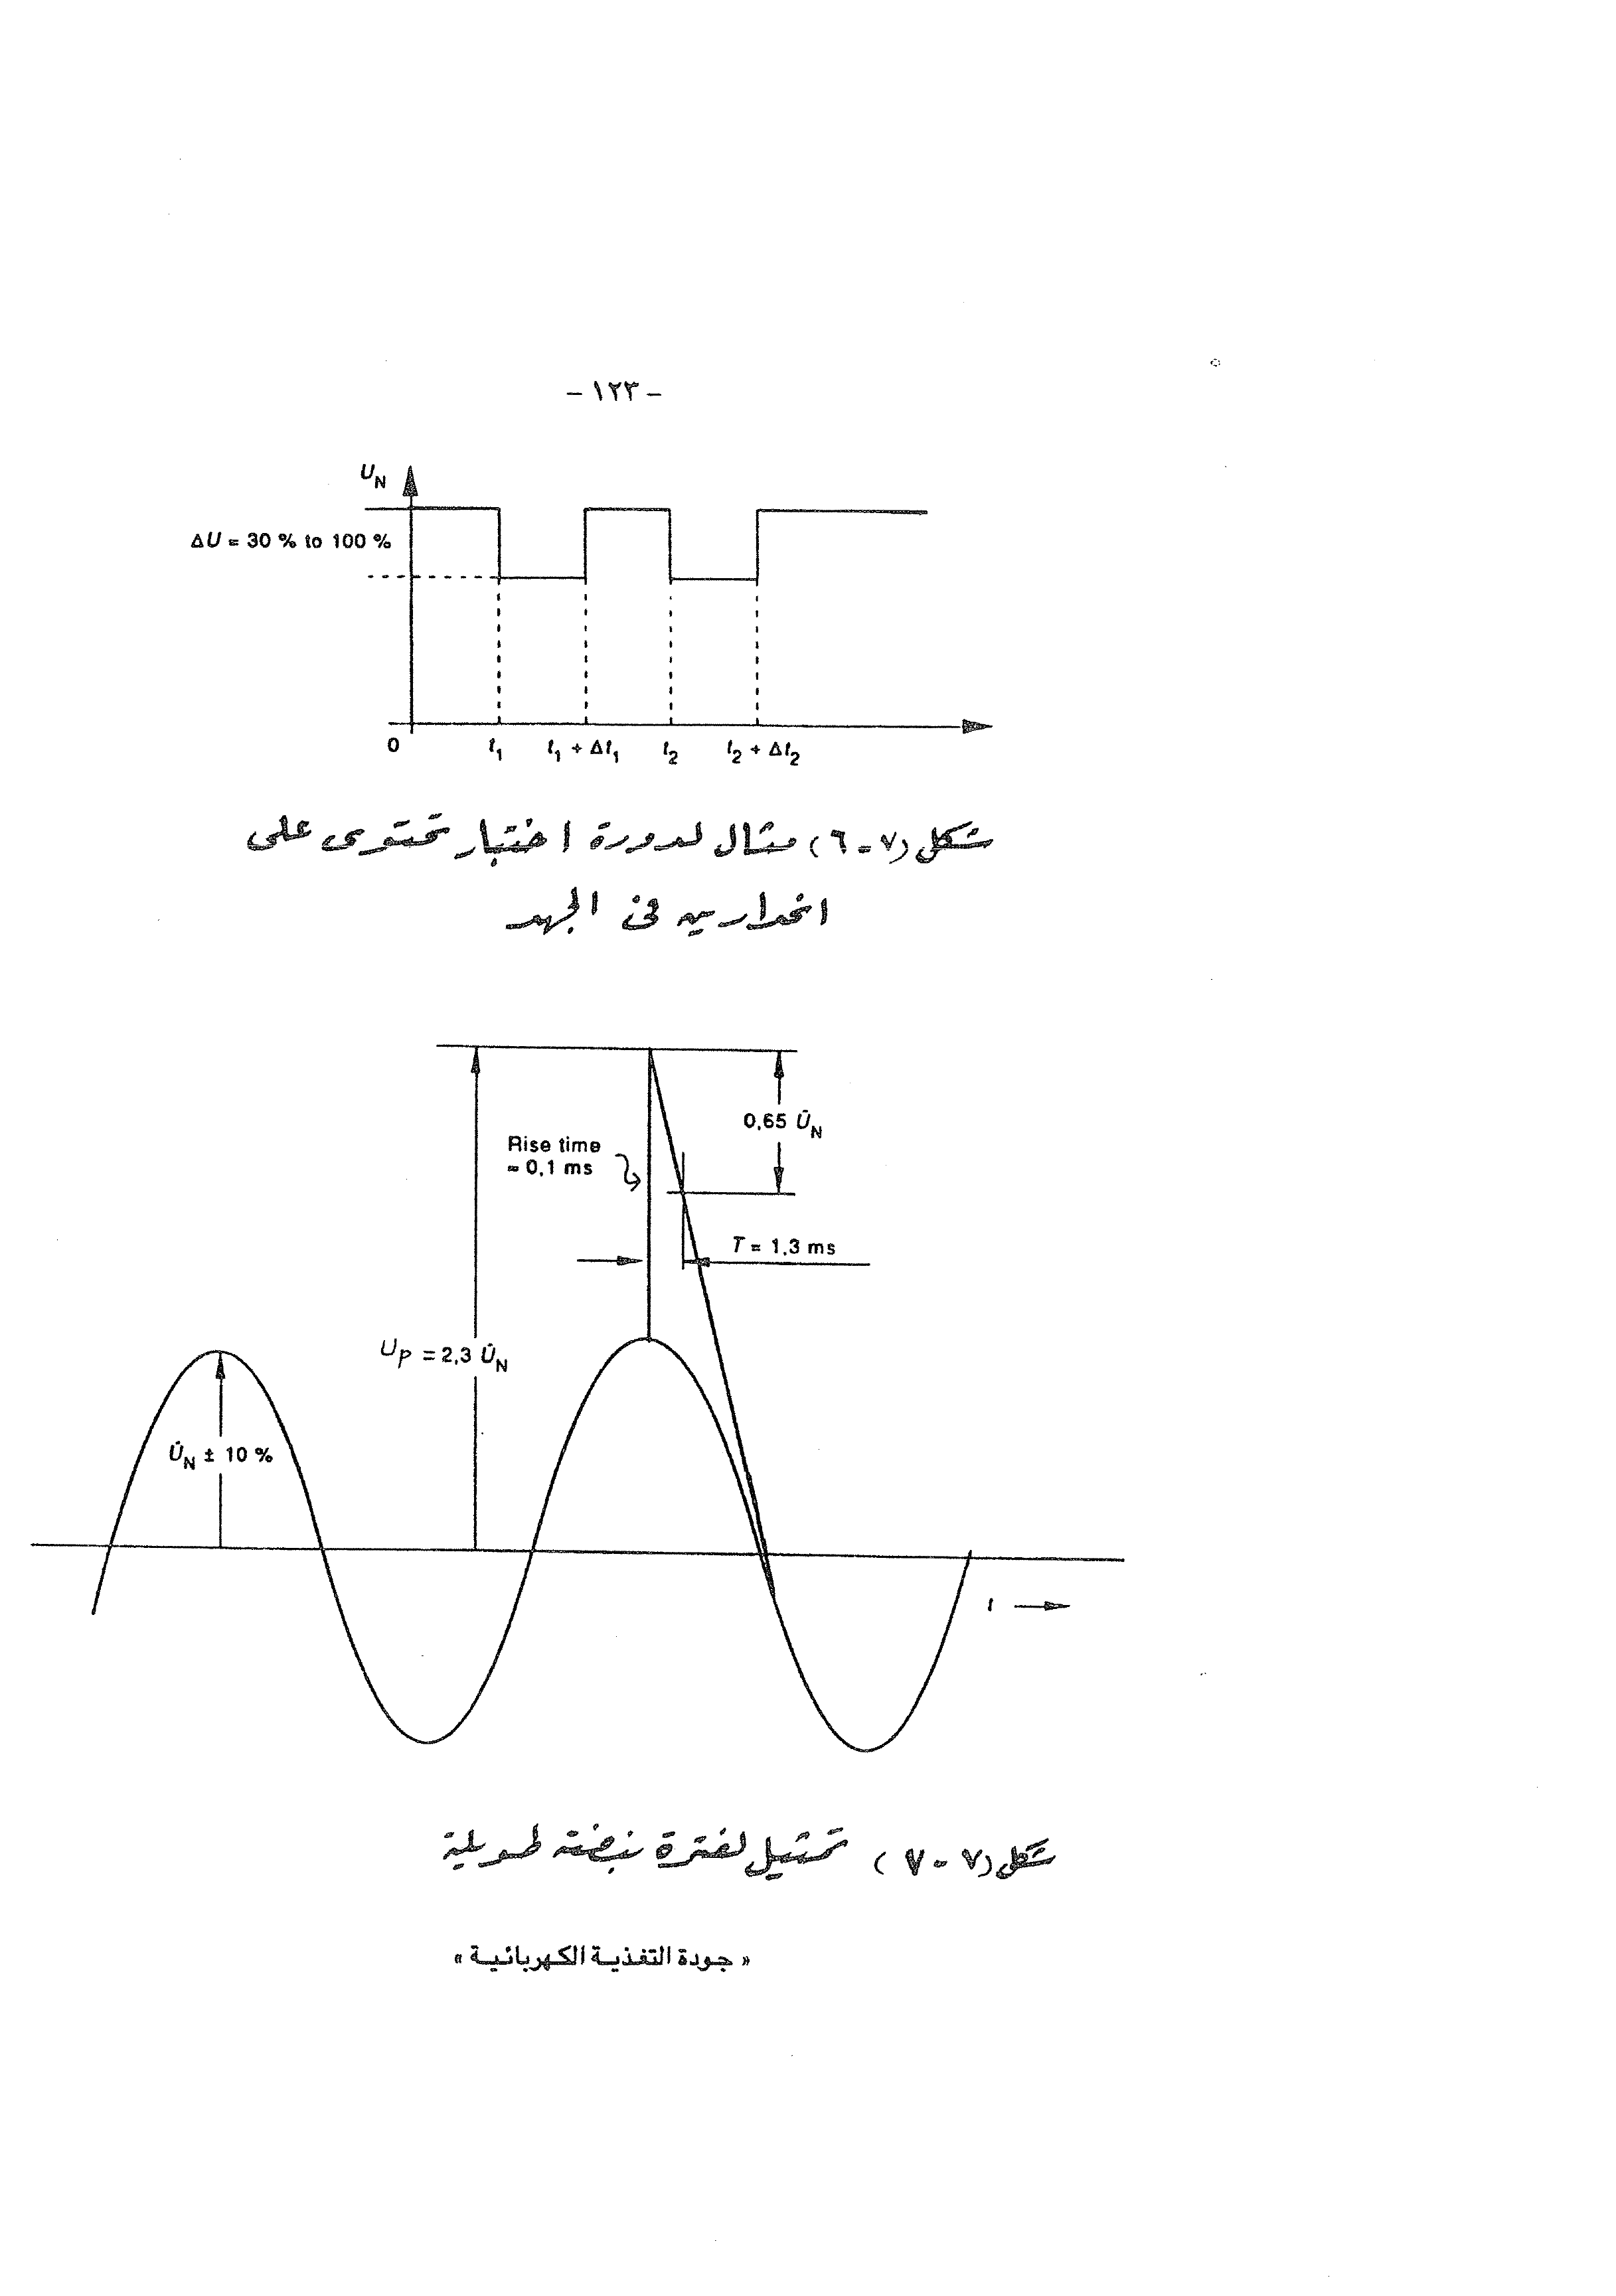 - ١٢٣ -
U_N
ΔU = 30 % to 100 %
0 t₁ t₁ + Δt₁ t₂ t₂ + Δt₂
شكل (٧-٦) مثال لدورة اختبار تحتوى على
انحدارين فى الجهد
0,65 Û_N
Rise time
≈ 0,1 ms
T = 1,3 ms
U_P = 2,3 Û_N
Û_N ± 10 %
t
شكل (٧-٧) تمثيل لفترة نبضة طويلة
« جودة التغذية الكهربائية »